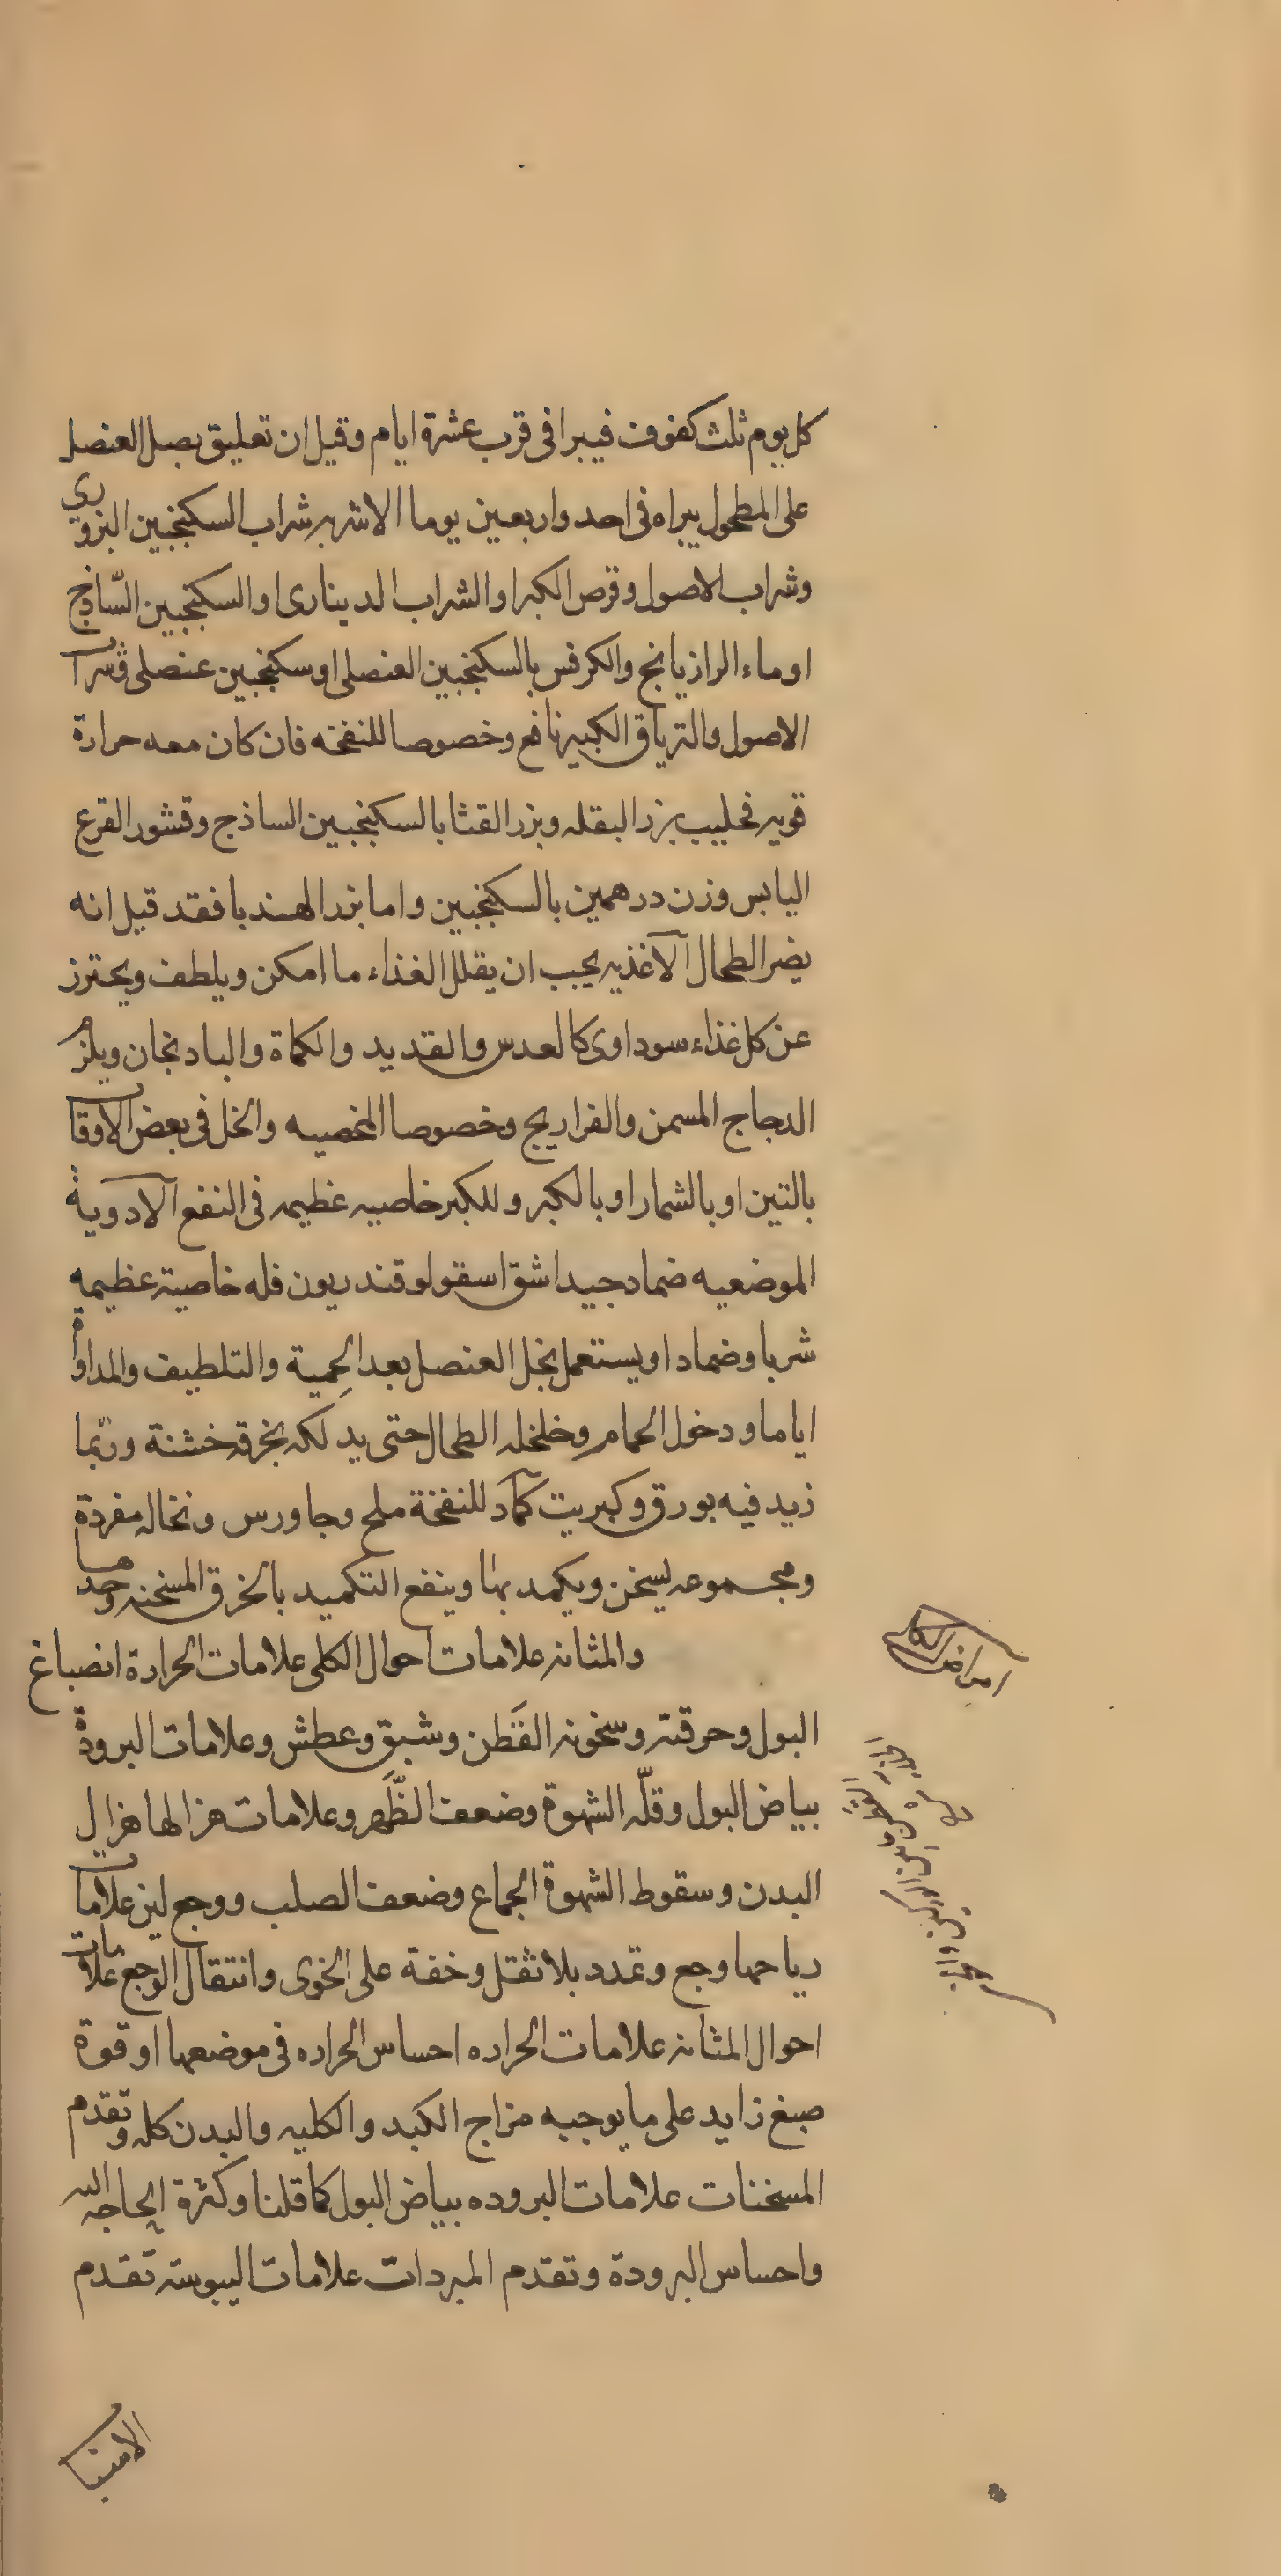 كل يوم ثلث كفوف فيبرا فى قرب عشرة ايام وقيل ان تعليق بصل العنصل
على المطحول يبراه فى احد واربعين يوما الاشربه شراب السكنجبين البزورى
وشراب الاصول وقرص الكبر او الشراب الدينارى او السكنجبين السّاذج
او ماء الرازيانج والكرفس بالسكنجبين العنصلى او سكنجبين عنصلى وشراب
الاصول والترياق الكبير نافع وخصوصا للنفخه فان كان معه حرارة
قويه فحليب بزر البقله وبزر القثا بالسكنجبين الساذج وقشور القرع
اليابس وزن درهمين بالسكنجبين واما بزر الهندبا فقد قيل انه
يضر الطحال الاغذيه يجب ان يقلل الغذاء ما امكن ويلطف ويحترز
عن كل غذاء سوداوى كالعدس والقديد والكماة والبادنجان ويلزم
الدجاج المسمن والفراريج وخصوصا المخصيه والخل فى بعض الاوقات
بالتين او بالشمار او بالكبر وللكبر خاصيه عظيمه فى النفع الادوية
الموضعيه ضماد جيد اشق اسقولوقندريون فله خاصية عظيمه
شربا وضمادا ويستعمل بخل العنصل بعد الحِمية والتلطيف والمداواة
اياما ودخول الحمام وخلخله الطحال حتى يدلكه بخرقه خشنة وربّما
زيد فيه بورق وكبريت كماد للنفخة ملح وجاورس ونخاله مفردة
ومجموعه يسخن ويكمد بها وينفع التكميد بالخرق المسخنه وحدها
امراض الكلى
والمثانه علامات احوال الكلى علامات الحرارة انصباغ
البول وحرقته وسخونه القَطن وشبق وعطش وعلامات البرودة
بياض البول وقلّه الشهوة وضعف الظَّهر وعلامات هزالها هزال
البدن وسقوط الشهوة الجماع وضعف الصلب ووجع لين علامات
رياحها وجع وتمدد بلا ثقل وخفة على الخوى وانتقال الوجع علامات
احوال المثانه علامات الحراره احساس الحراره فى موضعها او قوة
صبغ زايد على ما يوجبه مزاج الكبد والكليه والبدن كله وتقدم
المسخنات علامات البروده بياض البول كما قلنا وكثرة الحاجه اليه
واحساس البرودة وتقدم المبردات علامات اليبوسته تقدم